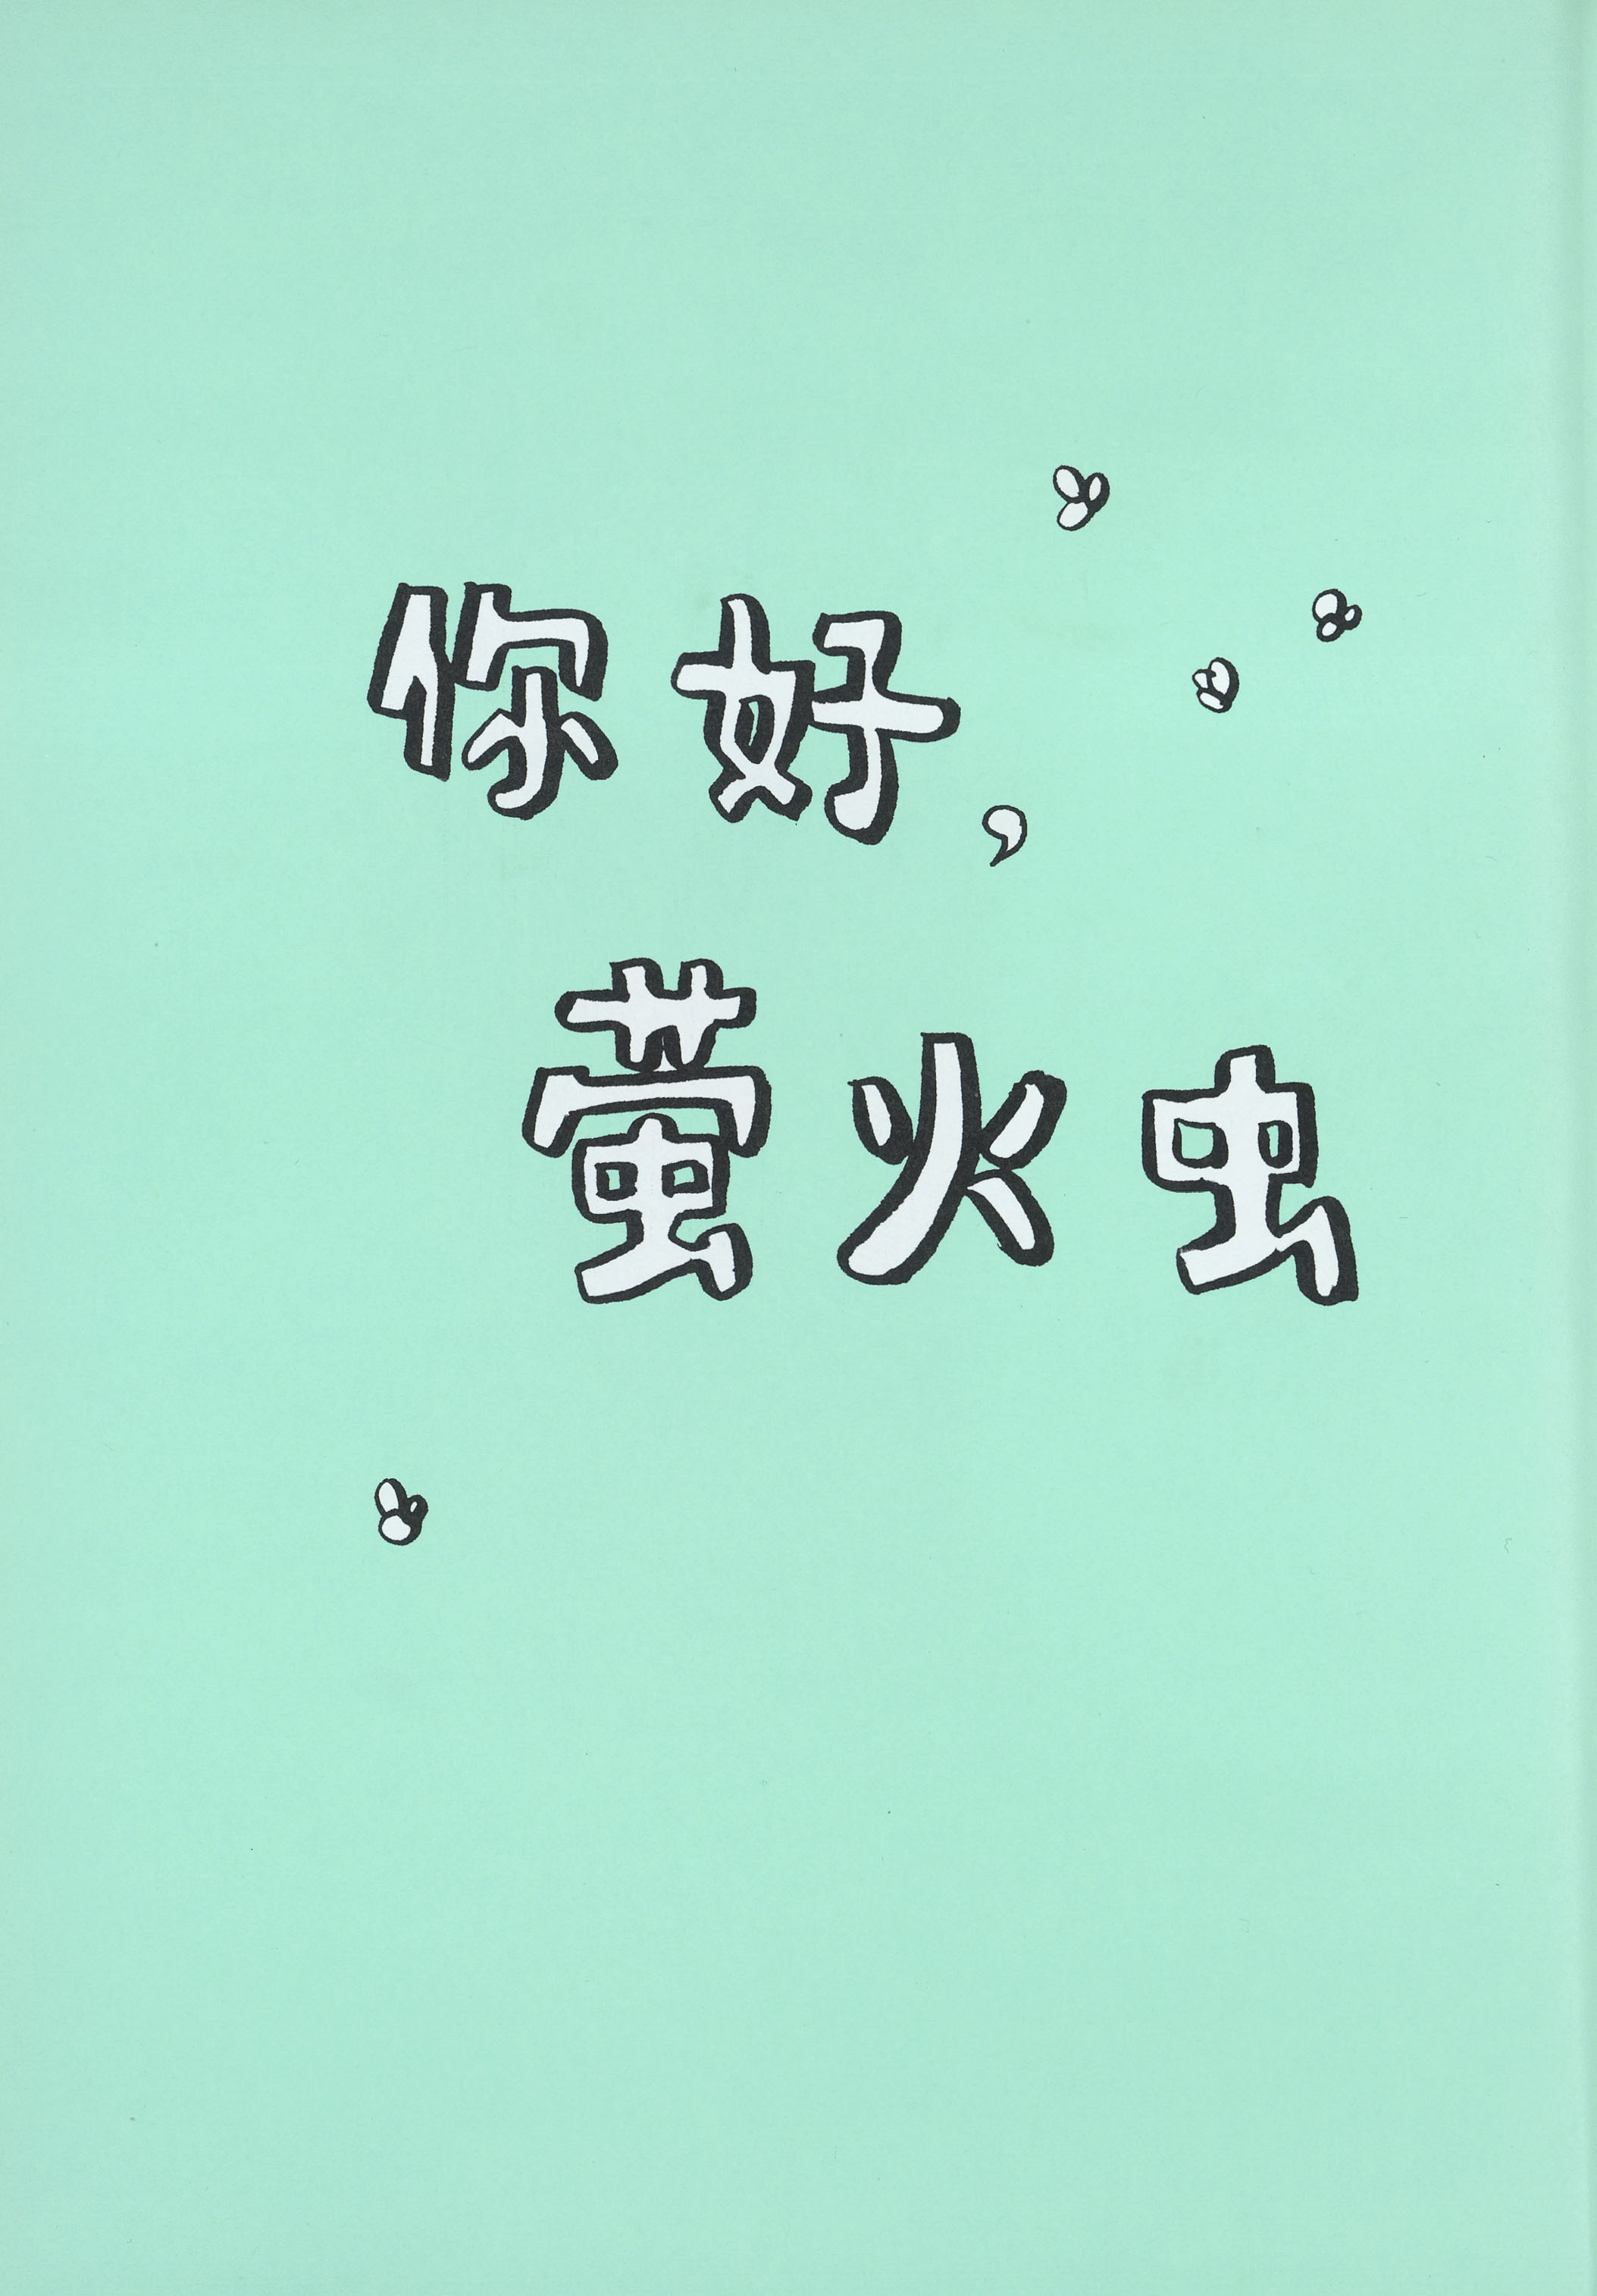 你好，
萤火虫